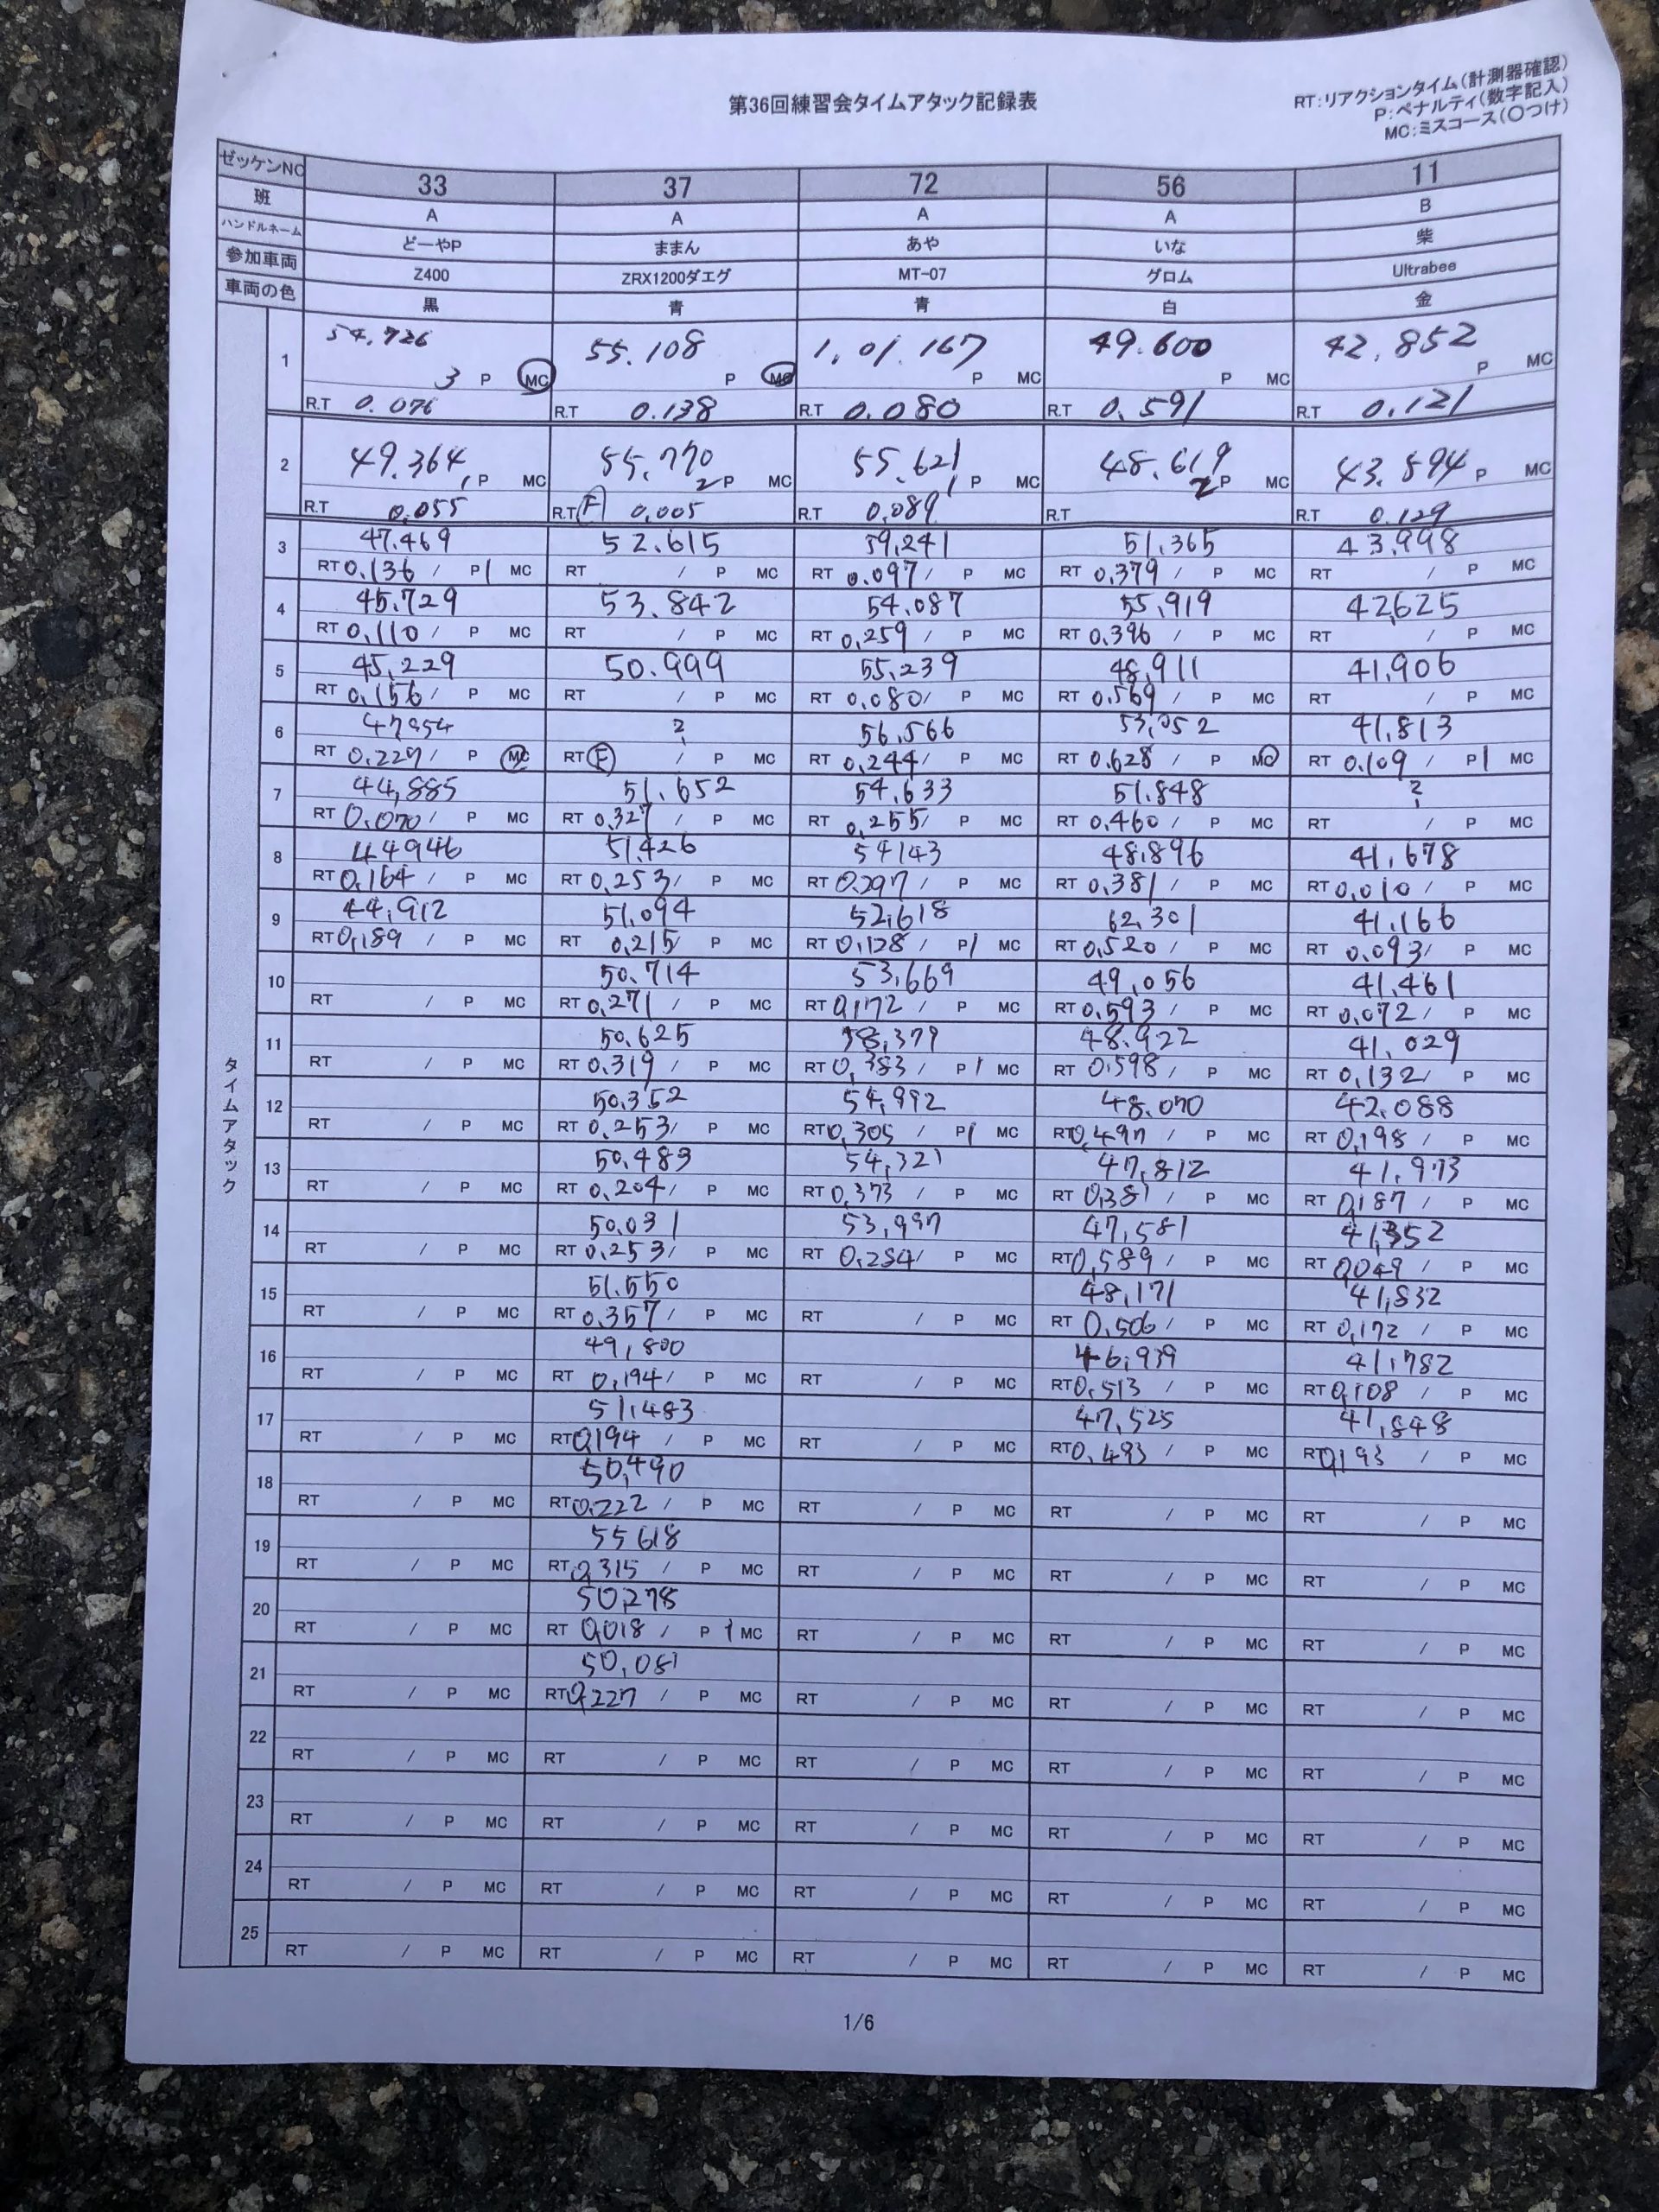 第36回練習会タイムアタック記録表
RT:リアクションタイム(計測器確認)
P:ペナルティ(数字記入)
MC:ミスコース(〇つけ)
ゼッケンNO 33 37 72 56 11
班 A A A A B
ハンドルネーム どーやP ままん あや いな 柴
参加車両 Z400 ZRX1200ダエグ MT-07 グロム Ultrabee
車両の色 黒 青 青 白 金
タイムアタック
1 54.726 55.108 1.01.167 49.600 42.852
3 P MC P MC P MC P MC P MC
R.T 0.076 R.T 0.138 R.T 0.080 R.T 0.591 R.T 0.121
2 49.364 55.770 55.621 48.619 43.894
1 P MC 2 P MC 1 P MC 2 P MC P MC
R.T 0.055 R.T F 0.005 R.T 0.089 R.T R.T 0.129
3 47.469 52.615 59.241 51.365 43.998
RT 0.136 / P 1 MC RT / P MC RT 0.097 / P MC RT 0.379 / P MC RT / P MC
4 45.729 53.842 54.087 55.919 42.625
RT 0.110 / P MC RT / P MC RT 0.259 / P MC RT 0.396 / P MC RT / P MC
5 45.229 50.999 55.239 48.911 41.906
RT 0.156 / P MC RT / P MC RT 0.080 / P MC RT 0.569 / P MC RT / P MC
6 47.954 ? 56.566 53.052 41.813
RT 0.227 / P MC RT F / P MC RT 0.244 / P MC RT 0.628 / P MC RT 0.109 / P 1 MC
7 44.885 51.652 54.633 51.848 ?
RT 0.070 / P MC RT 0.327 / P MC RT 0.255 / P MC RT 0.460 / P MC RT / P MC
8 44946 51.426 54143 48.896 41.678
RT 0.164 / P MC RT 0.253 / P MC RT 0.297 / P MC RT 0.381 / P MC RT 0.010 / P MC
9 44.912 51.094 52.618 62.301 41.166
RT 0.189 / P MC RT 0.215 / P MC RT 0.128 / P 1 MC RT 0.520 / P MC RT 0.093 / P MC
10 50.714 53.669 49.056 41.461
RT / P MC RT 0.271 / P MC RT 0.172 / P MC RT 0.593 / P MC RT 0.072 / P MC
11 50.625 58.379 48.922 41.029
RT / P MC RT 0.319 / P MC RT 0.383 / P 1 MC RT 0.598 / P MC RT 0.132 / P MC
12 50.352 54.992 48.070 42.088
RT / P MC RT 0.253 / P MC RT 0.305 / P 1 MC RT 0.497 / P MC RT 0.198 / P MC
13 50.483 54.321 47.812 41.973
RT / P MC RT 0.204 / P MC RT 0.373 / P MC RT 0.381 / P MC RT 0.187 / P MC
14 50.031 53.997 47.581 41.352
RT / P MC RT 0.253 / P MC RT 0.284 / P MC RT 0.589 / P MC RT 0.049 / P MC
15 51.550 48.171 41.832
RT / P MC RT 0.357 / P MC RT / P MC RT 0.506 / P MC RT 0.172 / P MC
16 49.800 46.939 41.782
RT / P MC RT 0.194 / P MC RT / P MC RT 0.513 / P MC RT 0.108 / P MC
17 51.483 47.525 41.848
RT / P MC RT 0.194 / P MC RT / P MC RT 0.493 / P MC RT 0.193 / P MC
18 50.490
RT / P MC RT 0.222 / P MC RT / P MC RT / P MC RT / P MC
19 55618
RT / P MC RT 0.315 / P MC RT / P MC RT / P MC RT / P MC
20 50.278
RT / P MC RT 0.018 / P 1 MC RT / P MC RT / P MC RT / P MC
21 50.081
RT / P MC RT 0.227 / P MC RT / P MC RT / P MC RT / P MC
22
RT / P MC RT / P MC RT / P MC RT / P MC RT / P MC
23
RT / P MC RT / P MC RT / P MC RT / P MC RT / P MC
24
RT / P MC RT / P MC RT / P MC RT / P MC RT / P MC
25
RT / P MC RT / P MC RT / P MC RT / P MC RT / P MC
1/6